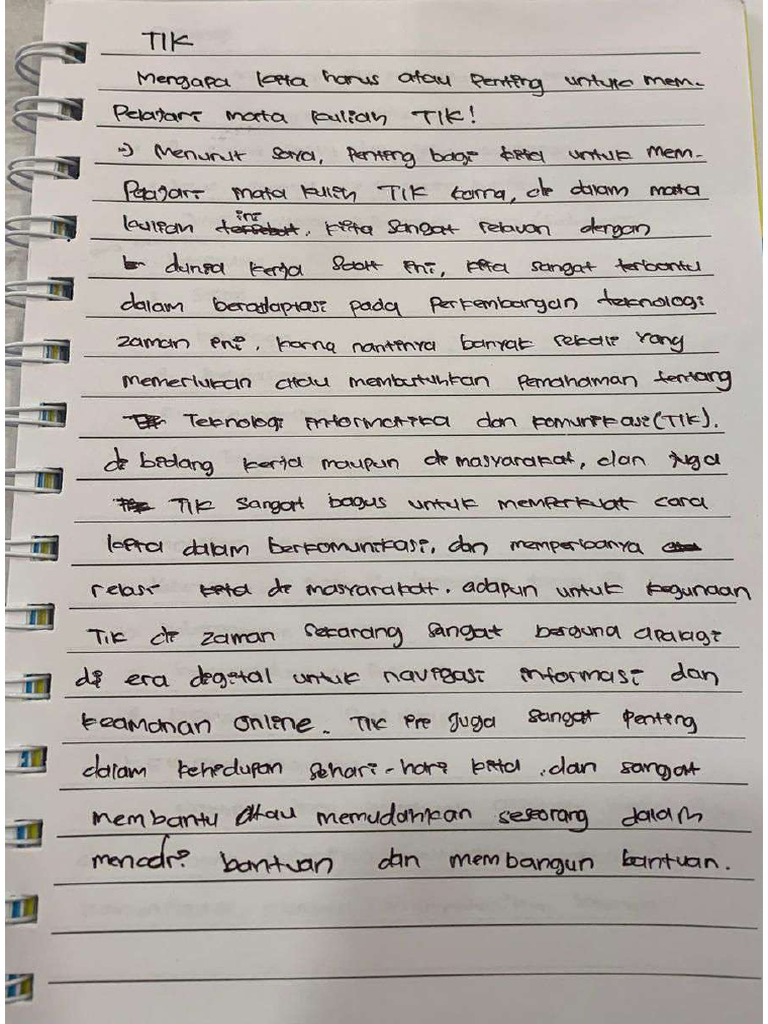 TIK
Mengapa kita harus atau Penting untuk mem-
Pelajari mata kuliah TIK!
-> Menurut saya, Penting bagi kita untuk mem-
Pelajari mata kulih TIK karna, di dalam mata
kuliah ini, kita sangat relavan dengan
dunia kerja saat ini, kita sangat terbantu
dalam beradaptasi pada perkembangan teknologi
zaman ini, karna nantinya banyak sekali yang
memerlukan atau membutuhkan Pemahaman tentang
Teknologi informatika dan komunikasi (TIK).
di bidang kerja maupun di masyarakat, dan juga
TIK sangat bagus untuk memperkuat cara
kita dalam berkomunikasi, dan memperbanya
relasi kita di masyarakat. adapun untuk kegunaan
TIK di zaman sekarang sangat berguna apalagi
di era digital untuk navigasi informasi dan
keamanan online. TIK ini juga sangat penting
dalam kehidupan sehari-hari kita, dan sangat
membantu atau memudahkan seseorang dalam
mencari bantuan dan membangun bantuan.